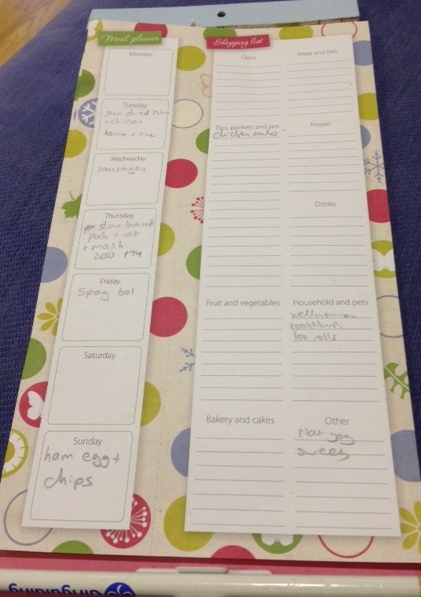 Meal planner
Monday
Tuesday
sun dried tom
+ chicken
Wednesday
sausages
Thursday
slow braised
pork +
+ mash
200 P74
Friday
Spag bol
Saturday
Sunday
ham egg +
chips
Shopping list
Dairy
Meat and fish
Tins, packets and jars
Frozen
Drinks
Fruit and vegetables
Household and pets
loo rolls
Bakery and cakes
Other
Nat
sweets